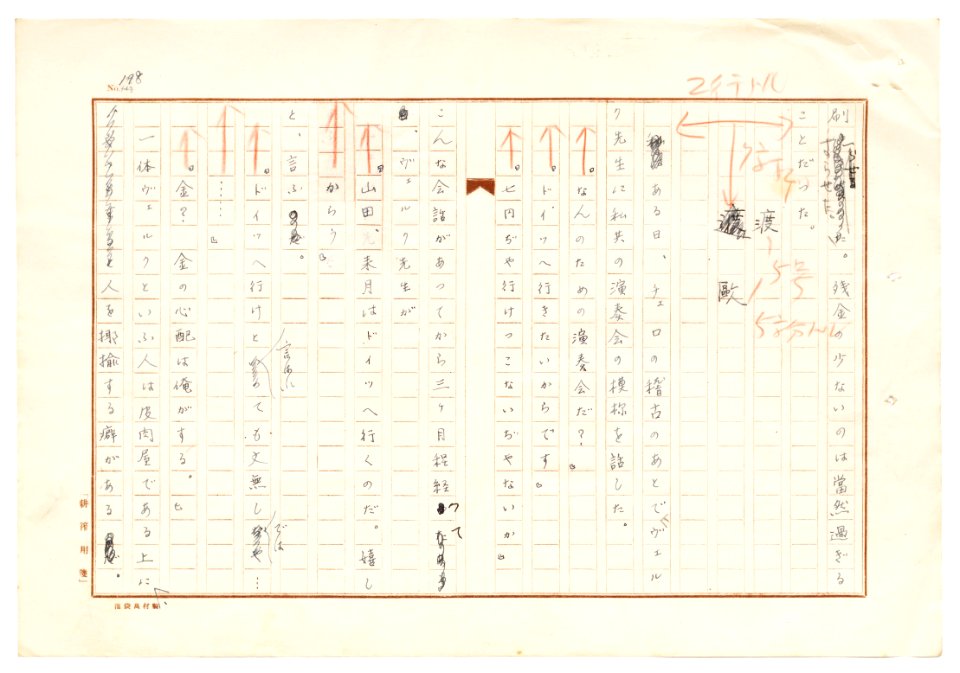 No. 198
2行ドル
刷らせた。残金の少ないのは當然過ぎる
ことだった。
7字下り
渡歐
5号
5号分アル
ある日、チェロの稽古のあとでヴェル
ク先生に私共の演奏会の模様を話した。
なんのための演奏会だ?』
ドイツへ行きたいからです』
七円ぢや行けつこないぢやないか』
こんな会話があつてから三ヶ月経つて
ヴェルク先生が
山田、来月はドイツへ行くのだ。嬉し
からう』
と、言ふ。
ドイツへ行けと言はれても文無しでは…
……』
金? 金の心配は俺がする。』
一体ヴェルクといふ人は皮肉屋である上に、
人を揶揄する癖がある。
「耕筰用箋」